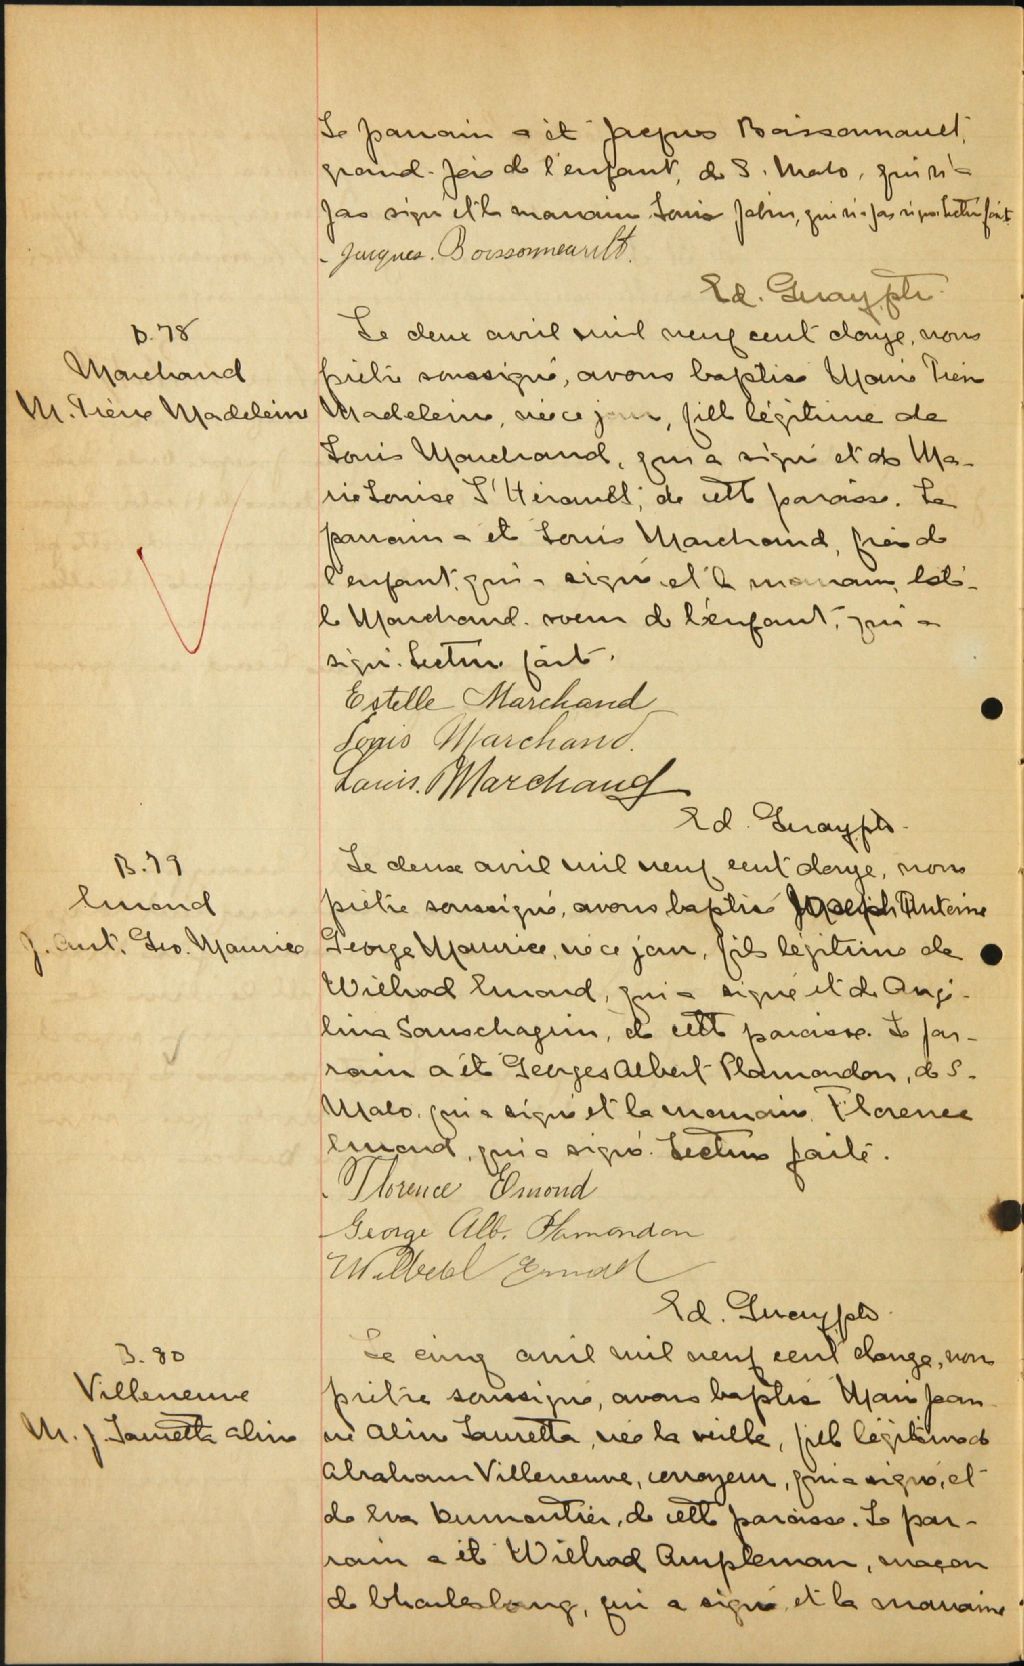 Le parrain a été Jacques Boissonnault,
grand-père de l'enfant, de S. Malo, qui n'a
pas signé et la marraine Louise qui n'a pas signé. Lecture faite
Jacques. Boissonneault.
Ed. Guay, ptr.
B. 78
Marchand
M. Pière Madeleine
Le deux avril mil neuf cent douze, nous
prêtre soussigné, avons baptisé Marie Pière
Madeleine, née ce jour, fille légitime de
Louis Marchand, qui a signé et de Ma-
rie Louise L'Hérault, de cette paroisse. Le
parrain a été Louis Marchand, frère de
l'enfant, qui a signé et la marraine, Estel-
le Marchand. soeur de l'enfant, qui a
signé. Lecture faite.
Estelle Marchand
Louis Marchand.
Louis. Marchand
Ed. Guay, ptr.
B. 79
Emond
J. Ant. Geo. Maurice
Le deux avril mil neuf cent douze, nous
prêtre soussigné, avons baptisé Joseph Antoine
George Maurice, né ce jour, fils légitime de
Wilbrod Emond, qui a signé et de Angé-
lina Sanschagrin, de cette paroisse. Le par-
rain a été Georges Albert Plamondon, de S.
Malo, qui a signé et la marraine Florence
Emond, qui a signé. Lecture faite.
Florence Emond
George Alb. Plamondon
Ed. Guay, ptr.
B. 80
Villeneuve
M. J. Lauretta Aline
Le cinq avril mil neuf cent douze, nous
prêtre soussigné, avons baptisé Marie Jean-
ne Aline Lauretta, née la veille, fille légitime de
Abraham Villeneuve, corroyeur, qui a signé, et
de Eva Dumontier, de cette paroisse. Le par-
rain a été Wilbrod Ampleman, maçon
de Charlesbourg, qui a signé et la marraine